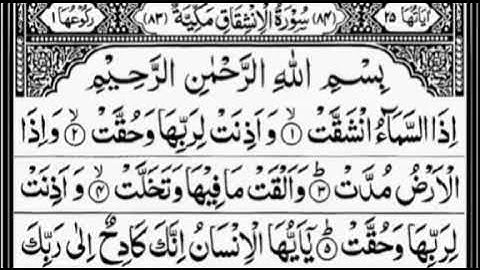 اٰیَاتُهَا ٢٥ (٨٤) سُوْرَةُ الْاِنْشِقَاقِ مَكِّيَّةٌ (٨٣) رُكُوْعُهَا ١
بِسْمِ اللّٰهِ الرَّحْمٰنِ الرَّحِيْمِ
اِذَا السَّمَآءُ انْشَقَّتْ ۙ﴿١﴾ وَ اَذِنَتْ لِرَبِّهَا وَ حُقَّتْ ۙ﴿٢﴾ وَ اِذَا
الْاَرْضُ مُدَّتْ ۙ﴿٣﴾ وَ اَلْقَتْ مَا فِيْهَا وَ تَخَلَّتْ ۙ﴿٤﴾ وَ اَذِنَتْ
لِرَبِّهَا وَ حُقَّتْ ؕ﴿٥﴾ يٰۤاَيُّهَا الْاِنْسَانُ اِنَّكَ كَادِحٌ اِلٰى رَبِّكَ